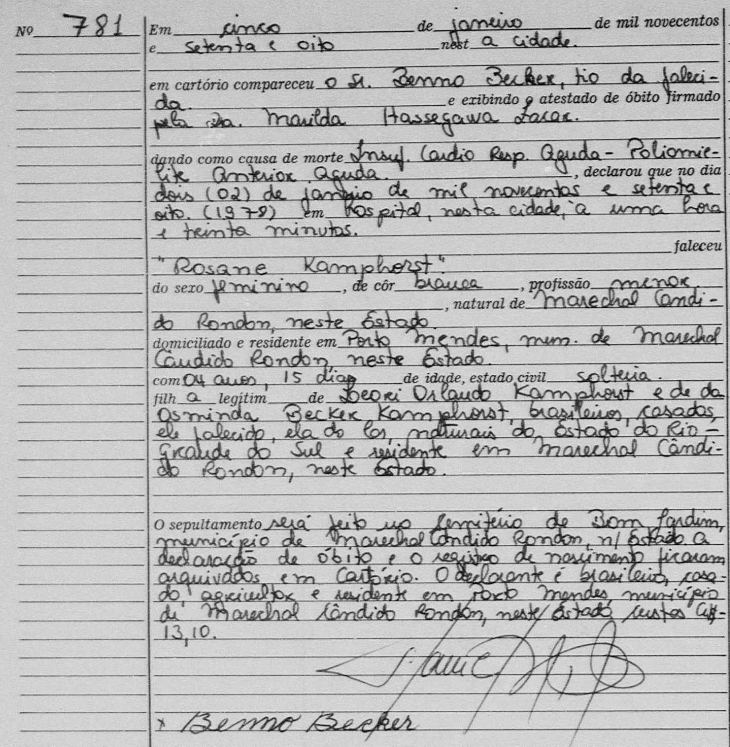 Nº 781 Em cinco de janeiro de mil novecentos
e setenta e oito nest a cidade.
em cartório compareceu o Sr. Benno Becker, tio da faleci-
da. e exibindo o atestado de óbito firmado
pela Dra. Marilda Hassegawa
dando como causa de morte Insuf. Cardio Resp. Aguda - Poliomie-
lite Anterior Aguda. , declarou que no dia
dois (02) de janeiro de mil, novecentos e setenta e
oito. (1978) em hospital, nesta cidade, à uma hora
e trinta minutos.
faleceu
"Rosane Kamphorst"
do sexo feminino , de côr branca , profissão menor
, natural de Marechal Cândi-
do Rondon, neste Estado.
domiciliado e residente em Porto Mendes, mun. de Marechal
Cândido Rondon, neste Estado
com 04 anos, 15 dias de idade, estado civil solteira.
filh a legítim de Deori Orlando Kamphorst e de da
Osminda Becker Kamphorst, brasileiros, casados,
ele falecido, ela do lar, naturais do Estado do Rio-
Grande do Sul e residente em Marechal Cândi-
do Rondon, neste Estado.
O sepultamento será feito no Cemitério de Bom Jardim,
município de Marechal Cândido Rondon, n/ Estado a
declaração de óbito e o registro de nascimento ficaram
arquivados em Cartório. O declarante é brasileiro, casa-
do, agricultor e residente em Porto Mendes, município
de Marechal Cândido Rondon, neste Estado custas Cr$-
13,10.
x Benno Becker